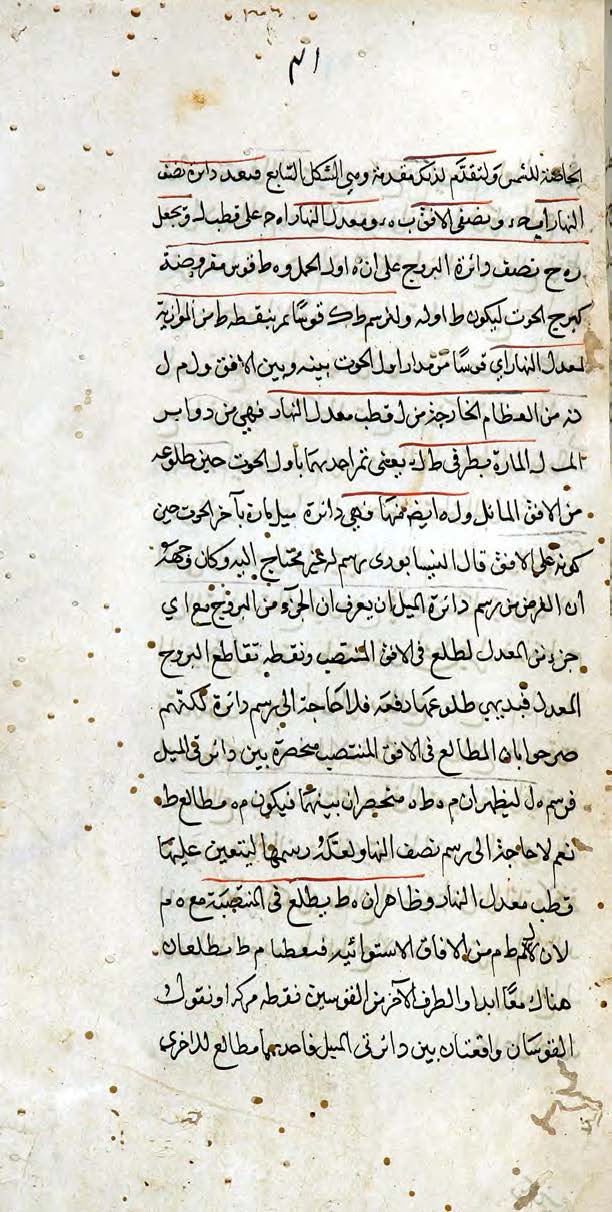 الخاصة للشمس ولنقدم لذكر مقدمة وهي الشكل السابع فنعيد دائرة نصف
النهار اب ح ء ونصفي الافق ب ه ء ومعدل النهار ا ه ح على قطب ل ونجعل
ر ه ح نصف دائرة البروج على ان ه اول الحمل و ه ط قوس مفروضة
كبرج الحوت ليكون ط اوله ولنرسم ط ك قوسا تمر بنقطة ط من الموازية
لمعدل النهار اي قوسا من مدار اول الحوت بينه وبين الافق و ل م ل
ك ن من العظام الخارجة من ل قطب معدل النهار فهي من دواير
الميل المارة بطرفي ط ك يعني تمر احديهما بأول الحوت حين طلوعه
من الافق المائل و ل ه ايضا منها فهي دائرة ميل مارة بآخر الحوت حين
كونه على الافق قال النيسابوري رسم ل ه غير محتاج اليه وكان وجهه
ان الغرض من رسم دائرة الميل ان يعرف ان الجزء من البروج مع اي
جزء من المعدل لطلع في الافق المنتصب ونقطة تقاطع البروج
المعدل فبديهي طلوعهما دفعة فلا حاجة الى رسم دائرة لكنهم
صرحوا بان المطالع في الافق المنتصب منحصرة بين دائرتي الميل
فرسم ه ل ليظهر ان م ه ط ه منحصران بينهما فيكون م ه مطالع ط ه
نعم لا حاجة الى رسم نصف النهار ولعله رسمها ليتعين عليها
قطب معدل النهار وظاهر ان ه ط يطلع في المنتصبة مع ه م
لان ل ط م من الافاق الاستوائية فنقطتا م ط مطلعان
هناك معا ابدا والطرف الآخر من القوسين فنقطة مركه او نقول
القوسان واقعتان بين دائرتي الميل فاحديهما مطالع للاخرى